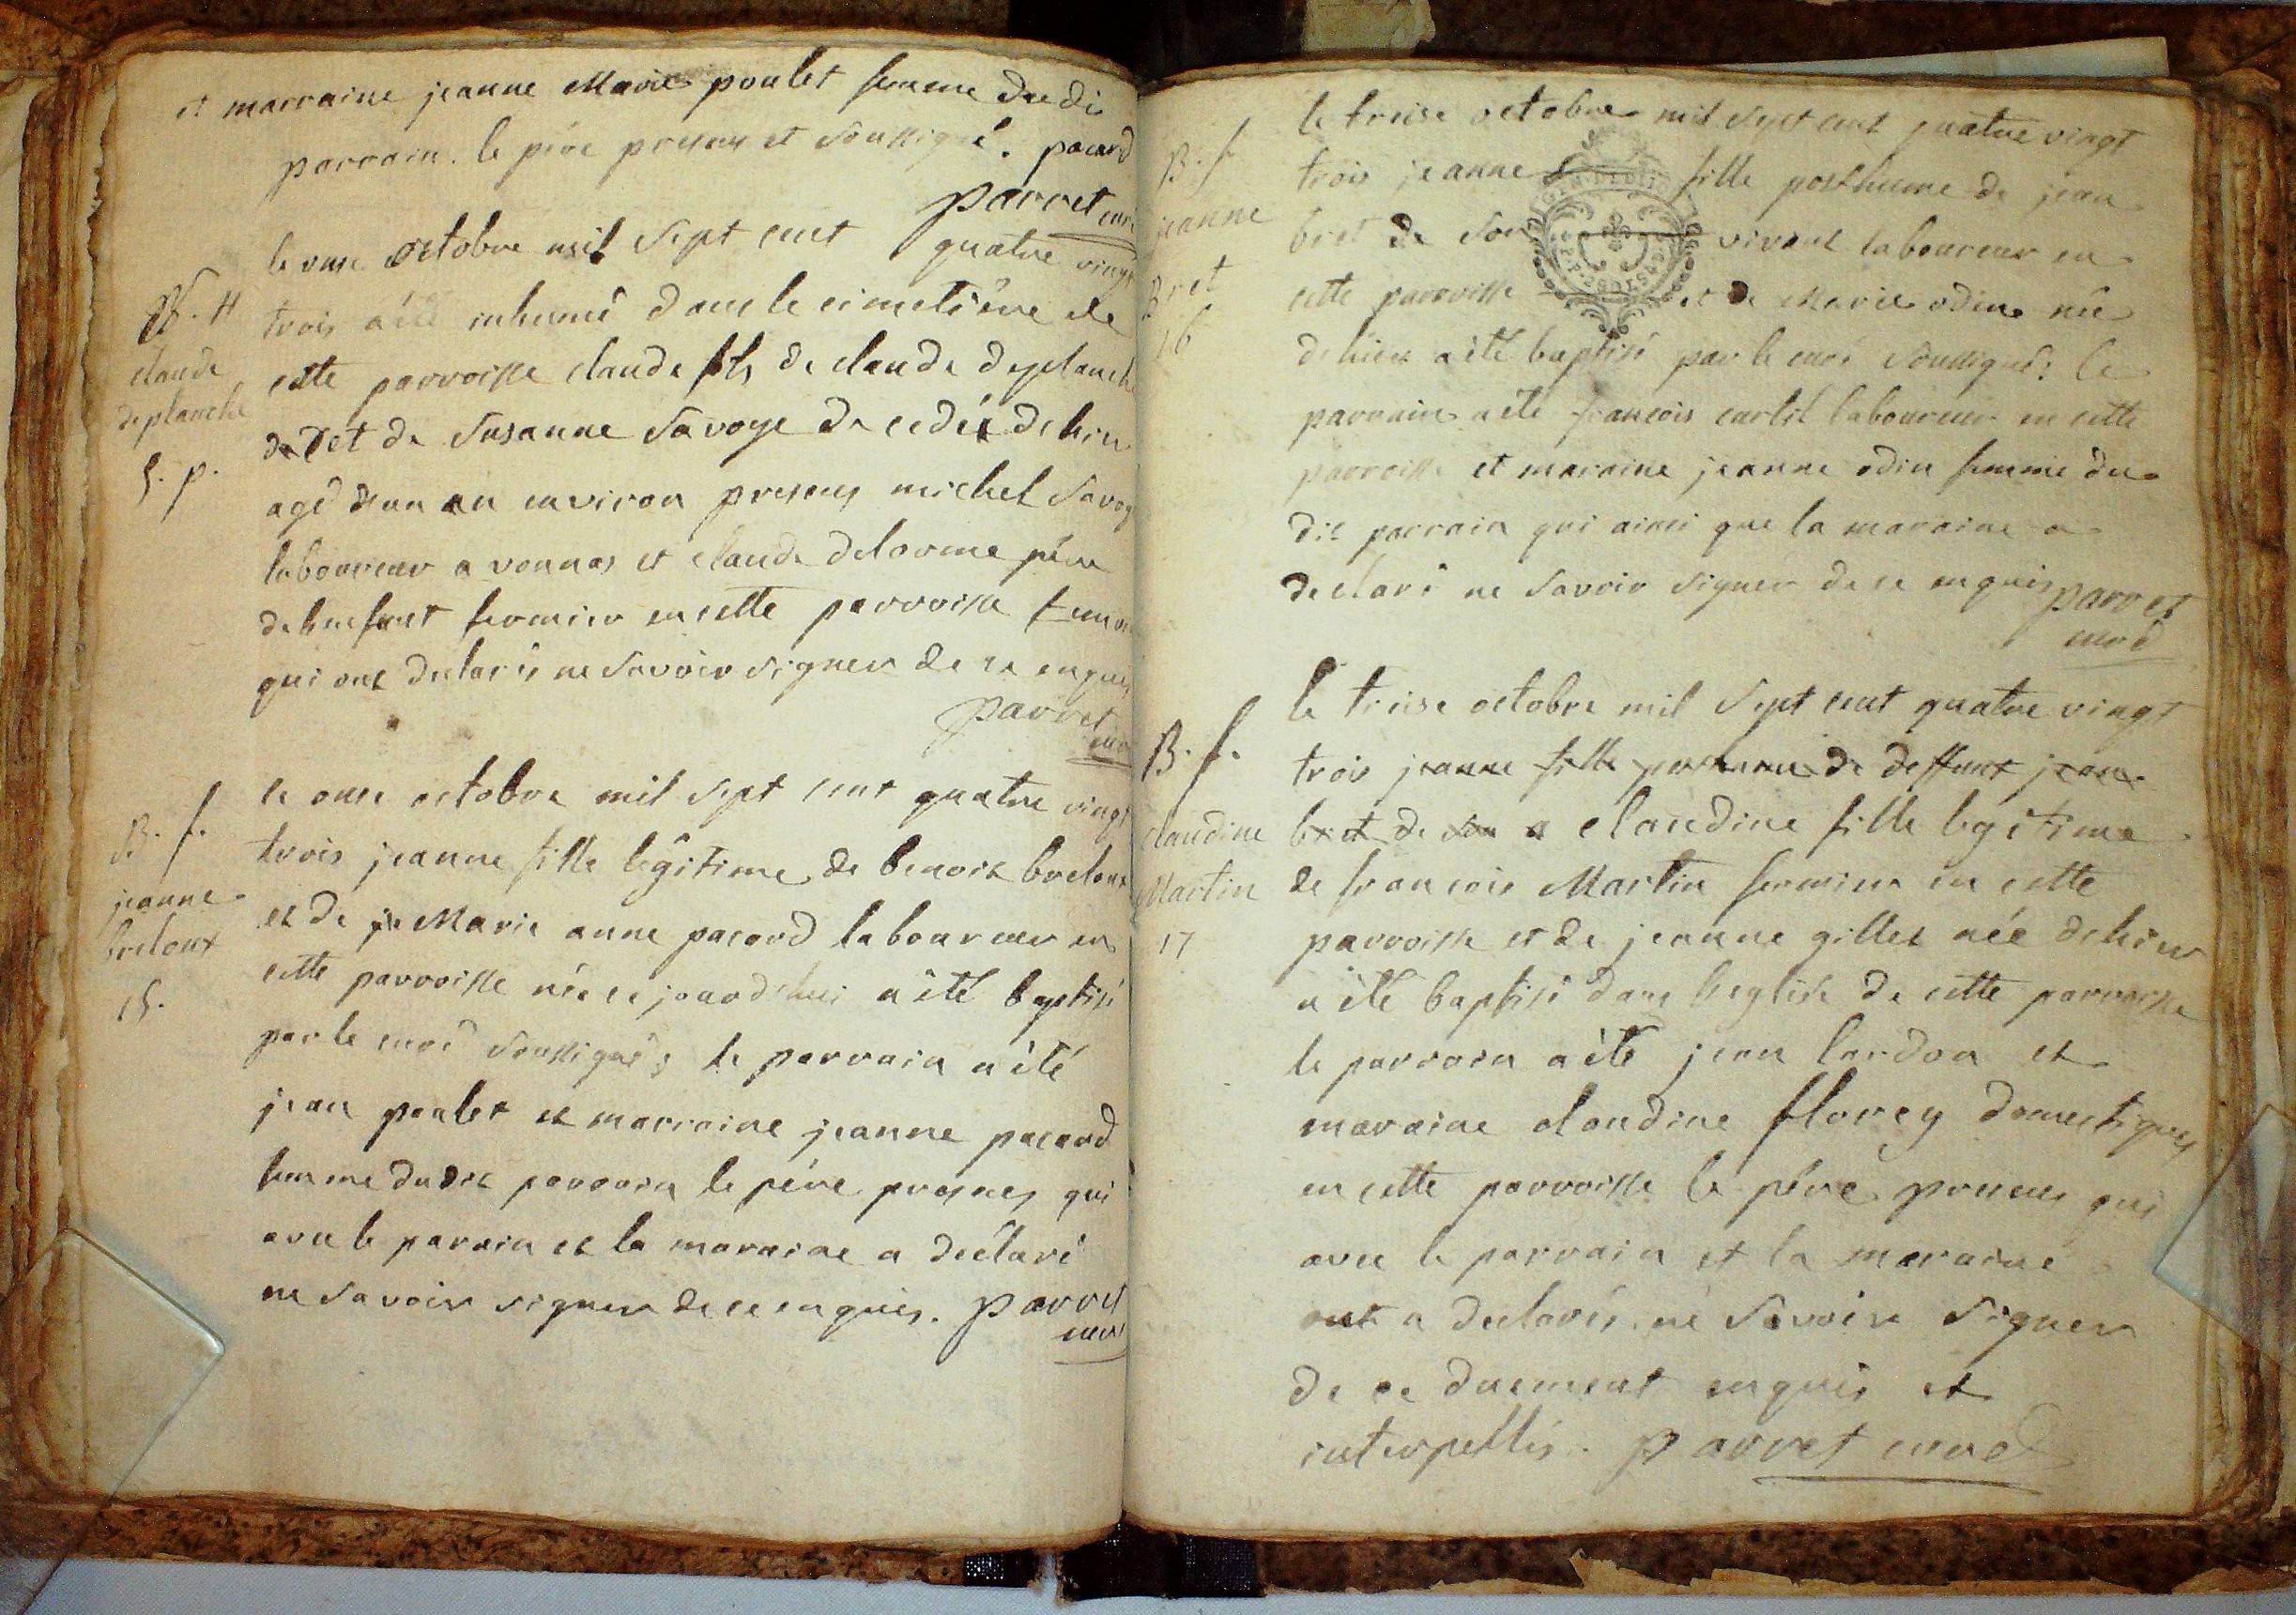 et marraine jeanne Marie poulet femme dudi
parrain. le père presens et soussigné. pacard
parret curé
le onse octobre mil sept cent quatre vingt
trois a été inhumé dans le cimetière de
cette parroisse claude fils de claude desplanche
et de Susanne Savoye decedé dehier
agé d'un an environ presens michel Savoy
laboureur a vonnas et claude delorme père
fermier en cette parroisse
qui ont declarés ne savoir signer de ce enquis
parret
curé
claude
deplanche
le onse octobre mil sept cent quatre vingt
trois jeanne fille légitime de benoit breloux
et de Marie anne pacard laboureur en
cette parroisse née ce jourd'hui a été baptisé
par le curé soussigné; le parrain a été
jean poulet et marraine jeanne pacard
femme dudit parrain le père presens qui
avec le parrain et la maraine a déclaré
ne savoir signer de ce enquis. parret
curé
B. f.
jeanne
breloux
15.
le treise octobre mil sept cent quatre vingt
trois jeanne fille posthume de jean
bret de son vivant laboureur en
cette parroisse et de Marie odin née
dehier a été baptisé par le curé soussigné: le
parrain a été francois curtil laboureur en cette
parroisse et maraine jeanne odin femme du
dit parrain qui ainsi que la maraine a
declaré ne savoir signer de ce enquis parret
curé
B. f
jeanne
Bret
16
le treise octobre mil sept cent quatre vingt
trois jeanne fille posthume de deffunt jean
bret de son a claudine fille legitime
de francois Martin fermier en cette
parroisse et de jeanne gillet née dehier
a été baptisé dans l'eglise de cette parroisse
le parrain a été jean lardon et
maraine claudine florey domestiques
en cette parroisse le père presens qui
avec le parrain et la maraine
ont a declarés ne savoir signer
de ce duement enquis et
interpellés. parret curé
B. f.
claudine
Martin
17